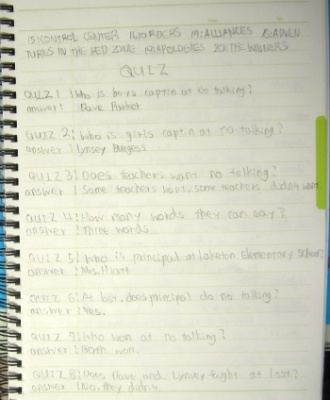 15:CONTROL CENTER 16:ORDERS 17:ALLIANCES 18:ADVEN
TURES IN THE RED ZONE 19:APOLOGIES 20:THE WINNERS
QUIZ
QUIZ 1: Who is boys captin at no talking?
answer: Dave Parket
QUIZ 2: Who is girls captin at no talking?
answer: Lynsey Burgess
QUIZ 3: Does teachers want no talking?
answer: Some teachers want, some teachers didn't want
QUIZ 4: How many words they can say?
answer: Three words
QUIZ 5: Who is principal at Laketon Elementary School?
answer: Mrs. Hiatt
QUIZ 6: At last, does principal do no talking?
answer: Yes.
QUIZ 7: Who won at no talking?
answer: Both won.
QUIZ 8: Does Dave and Lynsey fught at last?
answer: No, they didn't.